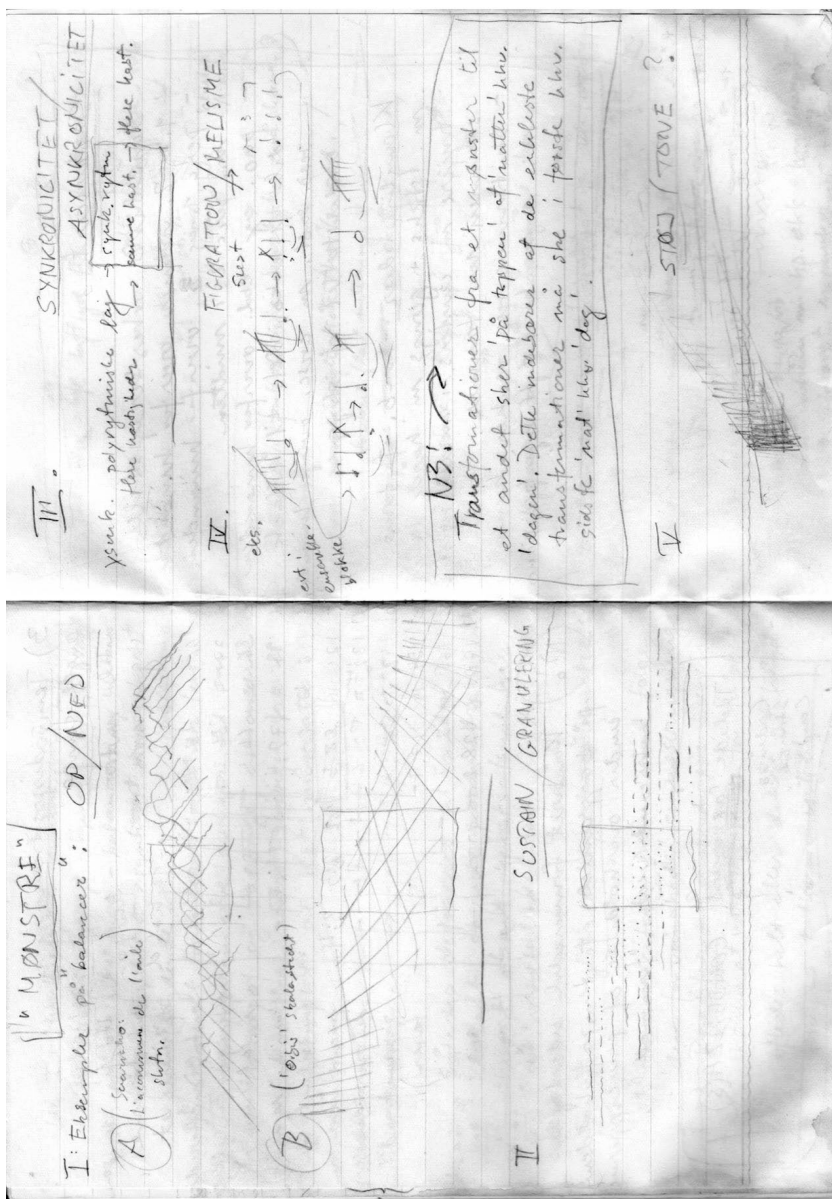 "MØNSTRE"
I: Eksempler på "balancer": OP/NED
A (Sciarrino:
sktr.
B ('Obis' skalastudst)
II SUSTAIN/GRANULERING
III. SYNKRONICITET/
ASYNKRONICITET
polyrytmiske lag → synk. rytm
flere hastigheder → samme hast. → flere hast.
IV. FIGURATION/MELISME
eks.
evt.
ensemble-
blokke
NB!
Transformationer fra et mønster til
et andet sker 'på toppen' af 'natten' hhv.
'dagen'. Dette indebærer at de enkleste
transformationer må ske i første hhv.
sidste 'nat' hhv 'dag'.
V STØJ/TONE?